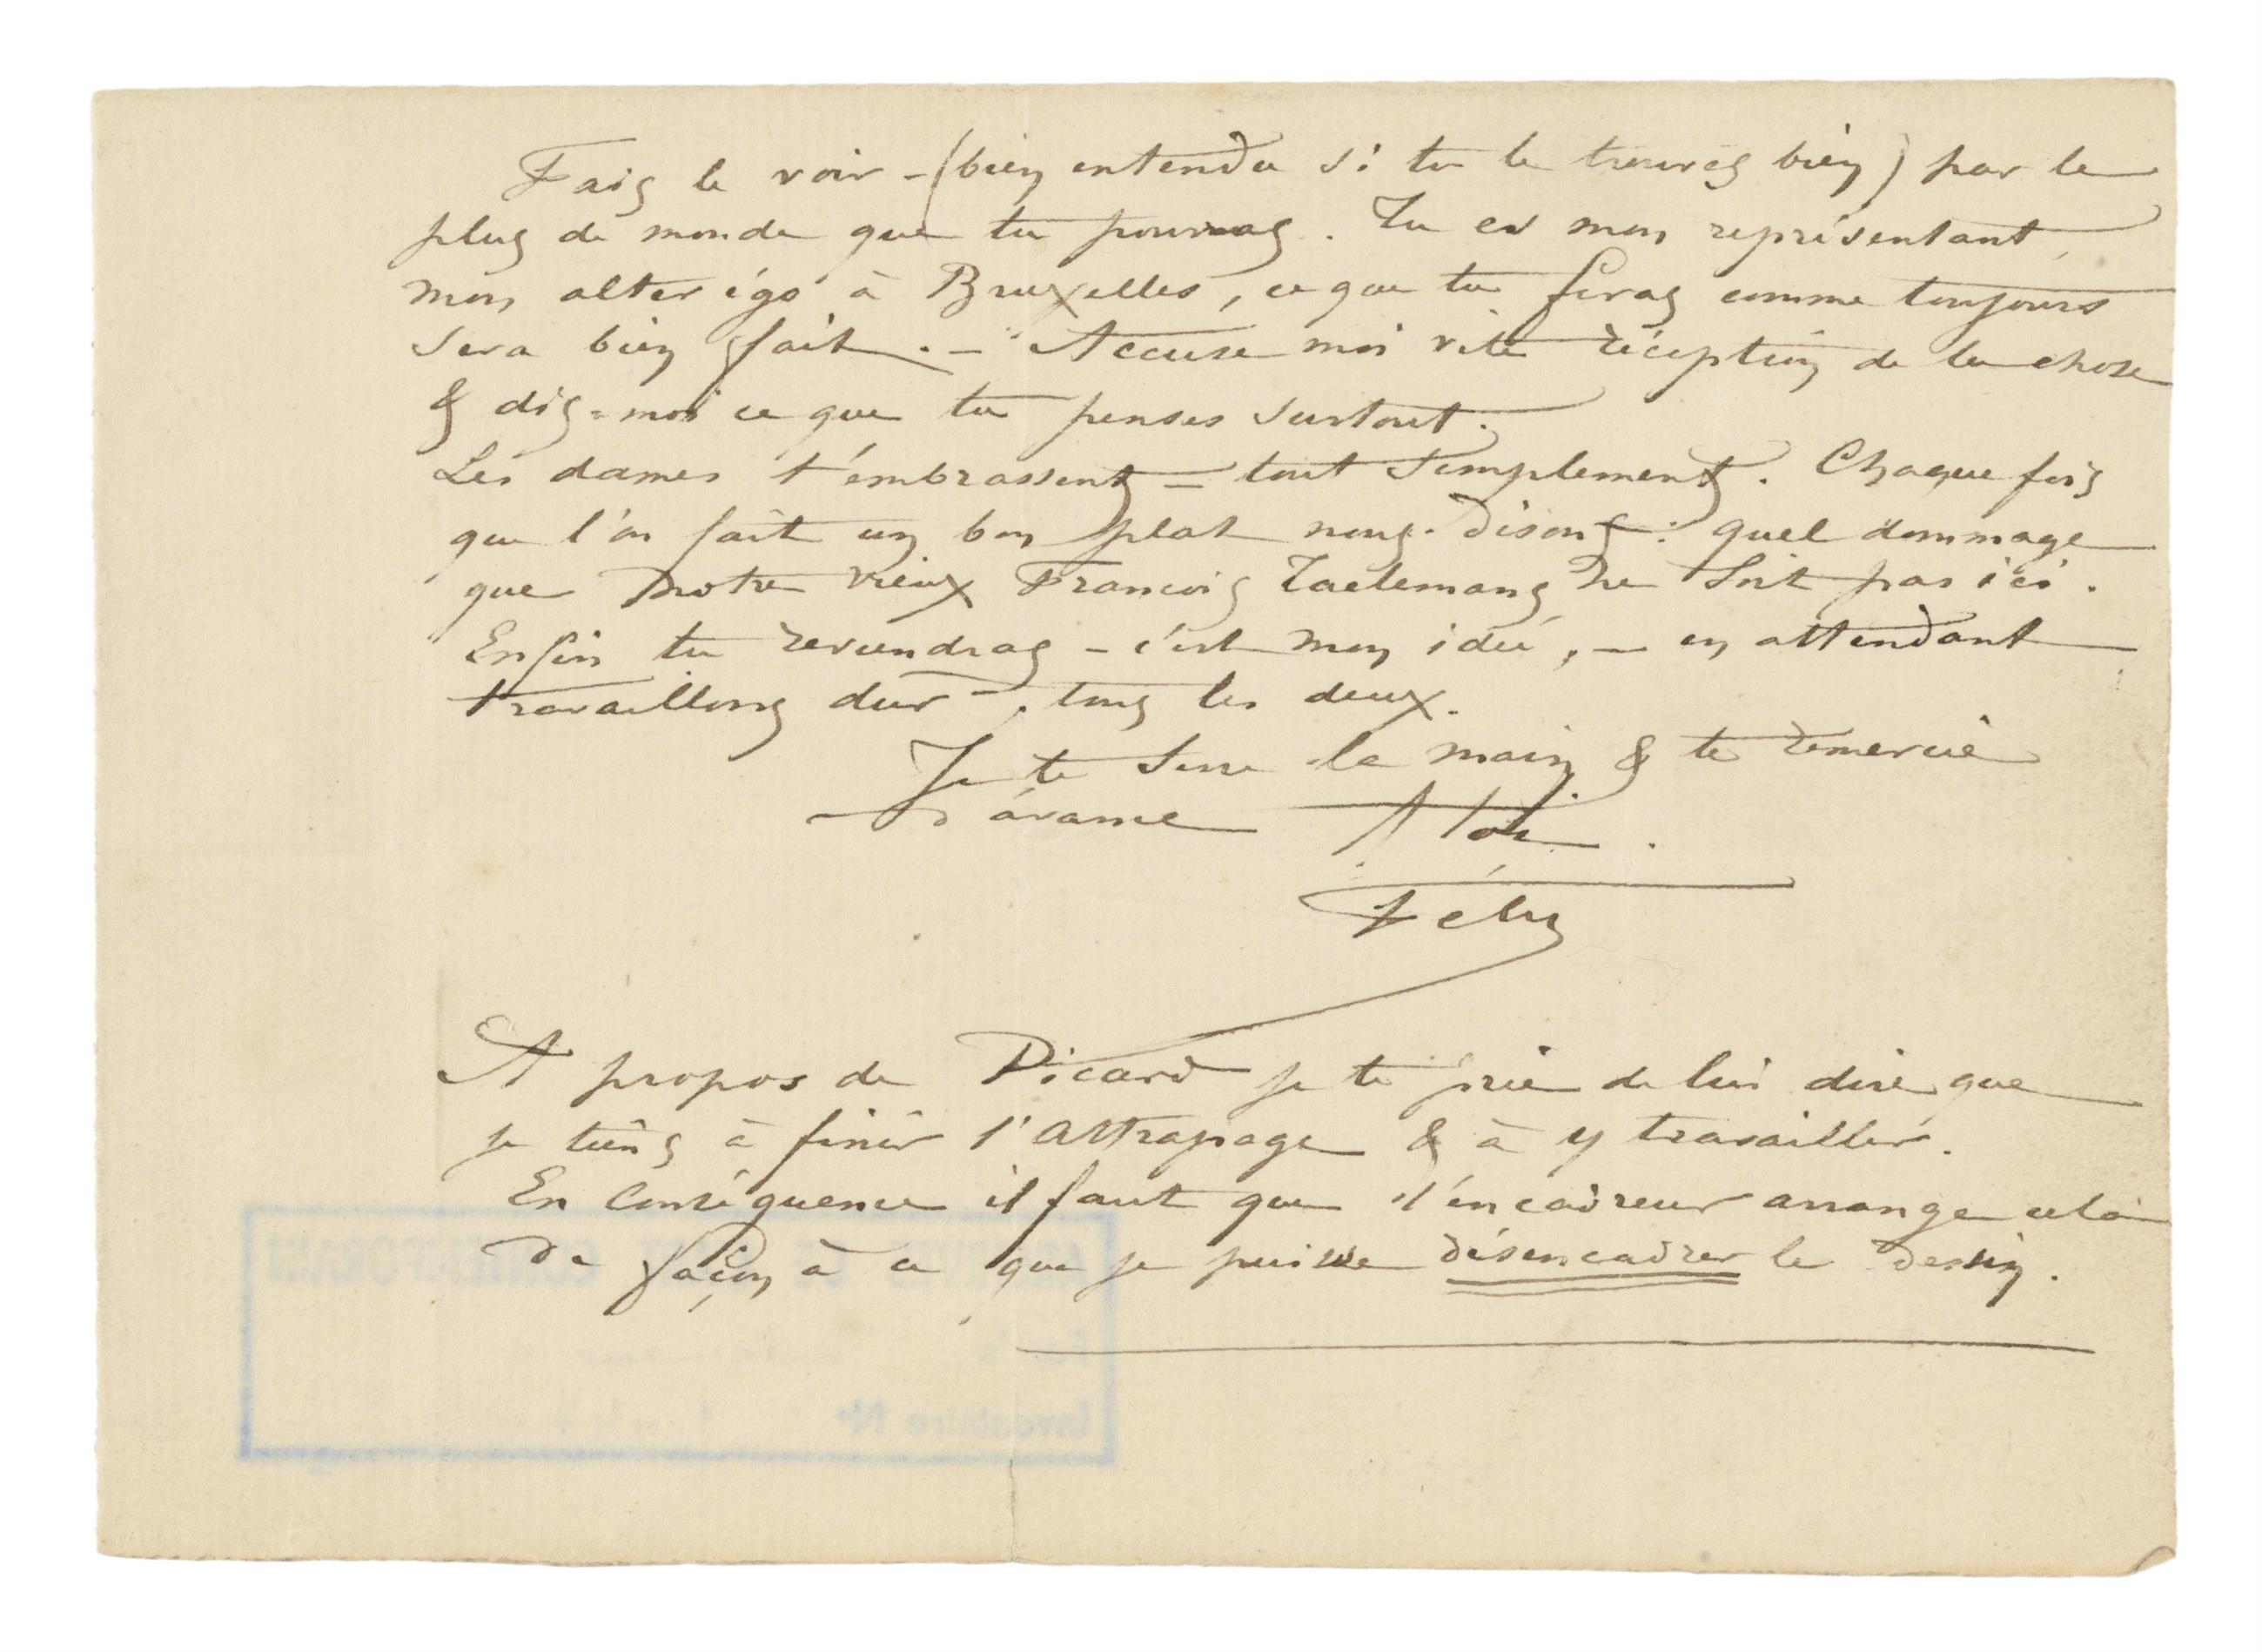 Fais le voir – (bien entendu si tu le trouves bien) par le
plus de monde que tu pourras. Tu es mon représentant,
mon alter égo à Bruxelles, ce que tu feras comme toujours
sera bien fait. – Accuse moi vite réception de la chose
& dis-moi ce que tu penses surtout.
Les dames t'embrassent = tout simplement. Chaque fois
que l'on fait un bon plat nous disons : quel dommage
que notre vieux François Taelemans ne soit pas ici.
Enfin tu reviendras – c'est mon idée, – en attendant
travaillons dur, tous les deux.
Je te serre la main & te remercie
d'avance
A toi.
Fély
A propos de Picard je te prie de lui dire que
je tiens à finir l'Attrapage & à y travailler.
En conséquence il faut que l'encadreur arrange cela
de façon à ce que je puisse désencadrer le dessin.
Inventaire N°